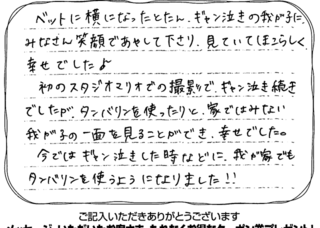 ベットに横になったとたん、ギャン泣きの我が子に
みなさん笑顔であやして下さり、見ていてほほえましく
幸せでした♪
初のスタジオマリオでの撮影で、ギャン泣き続き
でしたが、タンバリンを使ったりと、家ではみない
我が子の一面を見ることができ、幸せでした。
今ではギャン泣きした時などに、我が家でも
タンバリンを使うようになりました!!
ご記入いただきありがとうございます